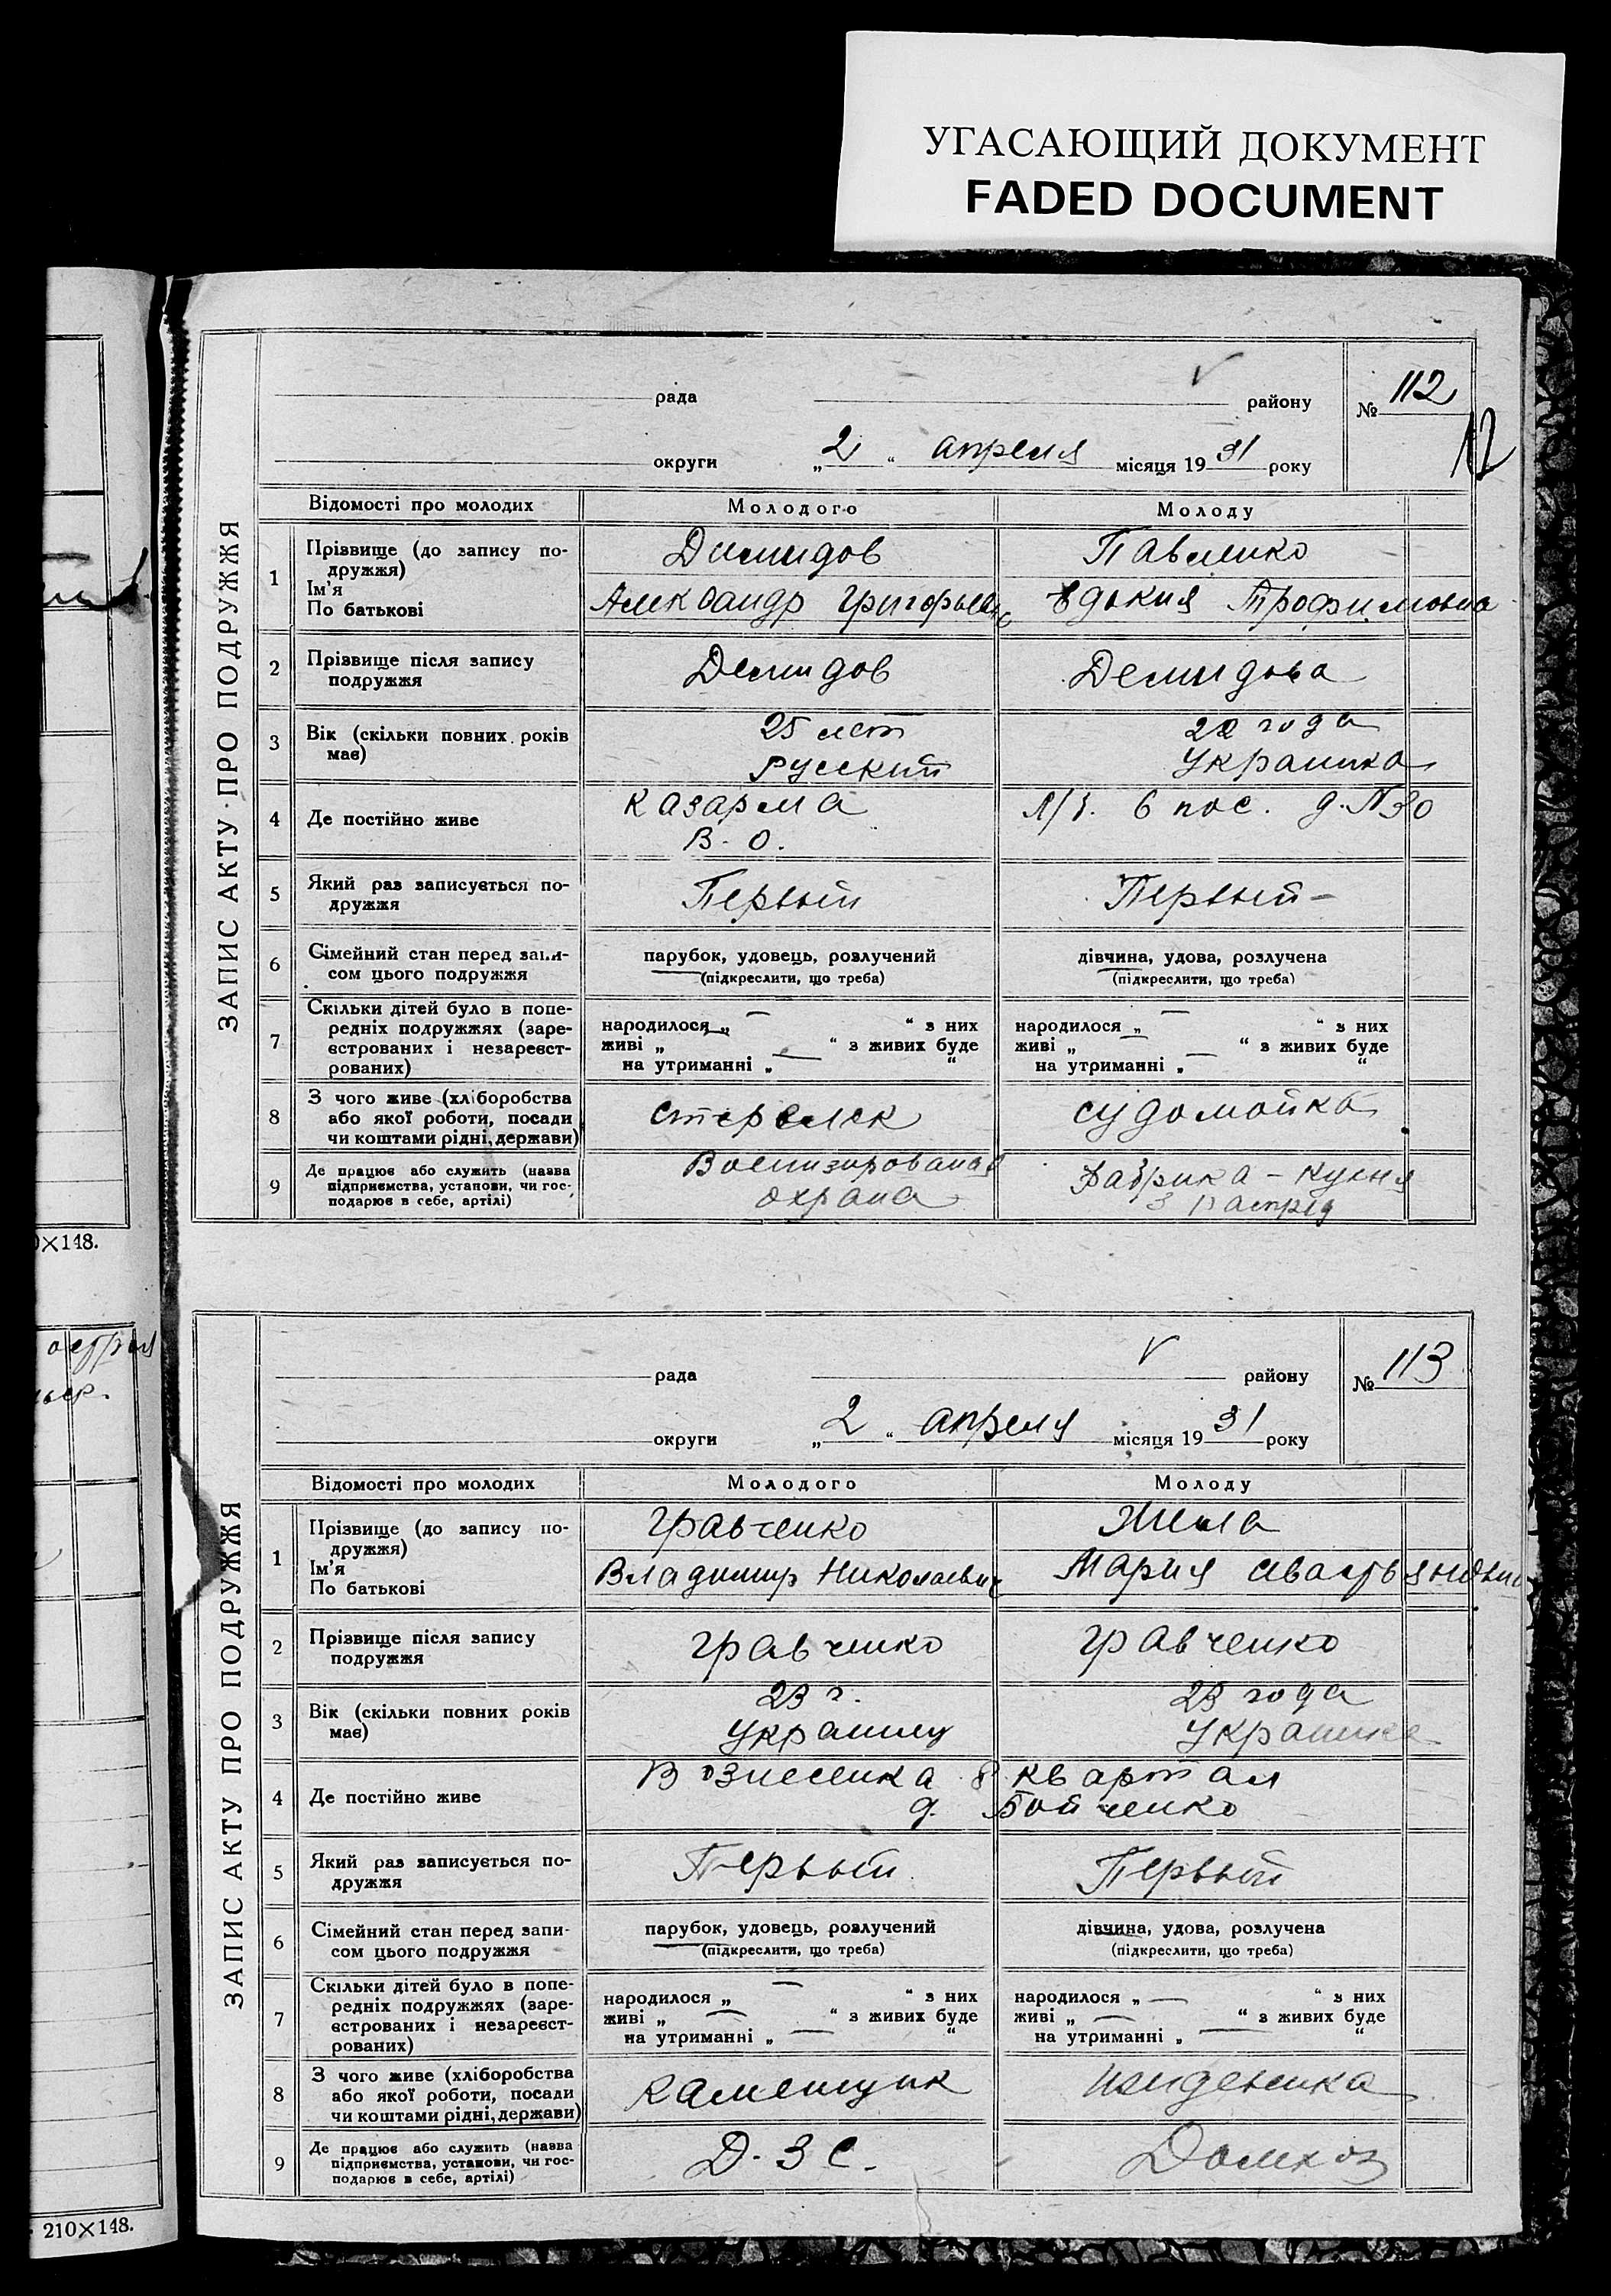 УГАСАЮЩИЙ ДОКУМЕНТ
FADED DOCUMENT
ЗАПИС АКТУ ПРО ПОДРУЖЖЯ
рада района
району
№ 112
12
округи „2“ апреля місяця 1931 року
Відомості про молодих Молодого Молоду
1 Прізвище (до запису по-
дружжя)
Ім’я
По батькові
Димидов Павленко
Александр Григорьевич Евдокия Трофимовна
2 Прізвище після запису
подружжя
Демидов Демидова
3 Вік (скільки повних років
має)
25 лет 22 года
Русский Украинка
4 Де постійно живе
Казарма 6 пос. д. №30
В. О.
5 Який раз записується по-
дружжя
Первый Первый
6 Сімейний стан перед запи-
сом цього подружжя
парубок, удовець, розлучений дівчина, удова, розлучена
(підкреслити, що треба) (підкреслити, що треба)
7 Скільки дітей було в попе-
редніх подружжях (заре-
єстрованих і незареєст-
рованих)
народилося „ “ з них народилося „ “ з них
живі „ “ з живих буде живі „ “ з живих буде
на утриманні „ “ на утриманні „ “
8 З чого живе (хліборобства
або якої роботи, посади
чи коштами рідні, держави)
стрелек судомойка
9 Де працює або служить (назва
підприємства, установи, чи гос-
подарює в себе, артілі)
Военизированая Фабрика - Кухня
охрана 3
0×148.
ЗАПИС АКТУ ПРО ПОДРУЖЖЯ
рада району
№ 113
округи „2“ апреля місяця 1931 року
Відомості про молодих Молодого Молоду
1 Прізвище (до запису по-
дружжя)
Ім’я
По батькові
Гравченко Жила
Владимир Николаевич Мария
2 Прізвище після запису
подружжя
Гравченко Гравченко
3 Вік (скільки повних років
має)
23 г. 23 года
Украинец Украинка
4 Де постійно живе
Вознесенка 8 квартал
д. Бойченко
5 Який раз записується по-
дружжя
Первый Первый
6 Сімейний стан перед запи-
сом цього подружжя
парубок, удовець, розлучений дівчина, удова, розлучена
(підкреслити, що треба) (підкреслити, що треба)
7 Скільки дітей було в попе-
редніх подружжях (заре-
єстрованих і незареєст-
рованих)
народилося „ “ з них народилося „ “ з них
живі „ “ з живих буде живі „ “ з живих буде
на утриманні „ “ на утриманні „ “
8 З чого живе (хліборобства
або якої роботи, посади
чи коштами рідні, держави)
Каменщик иждевенка
9 Де працює або служить (назва
підприємства, установи, чи гос-
подарює в себе, артілі)
Д. З С. Домхоз
210×148.